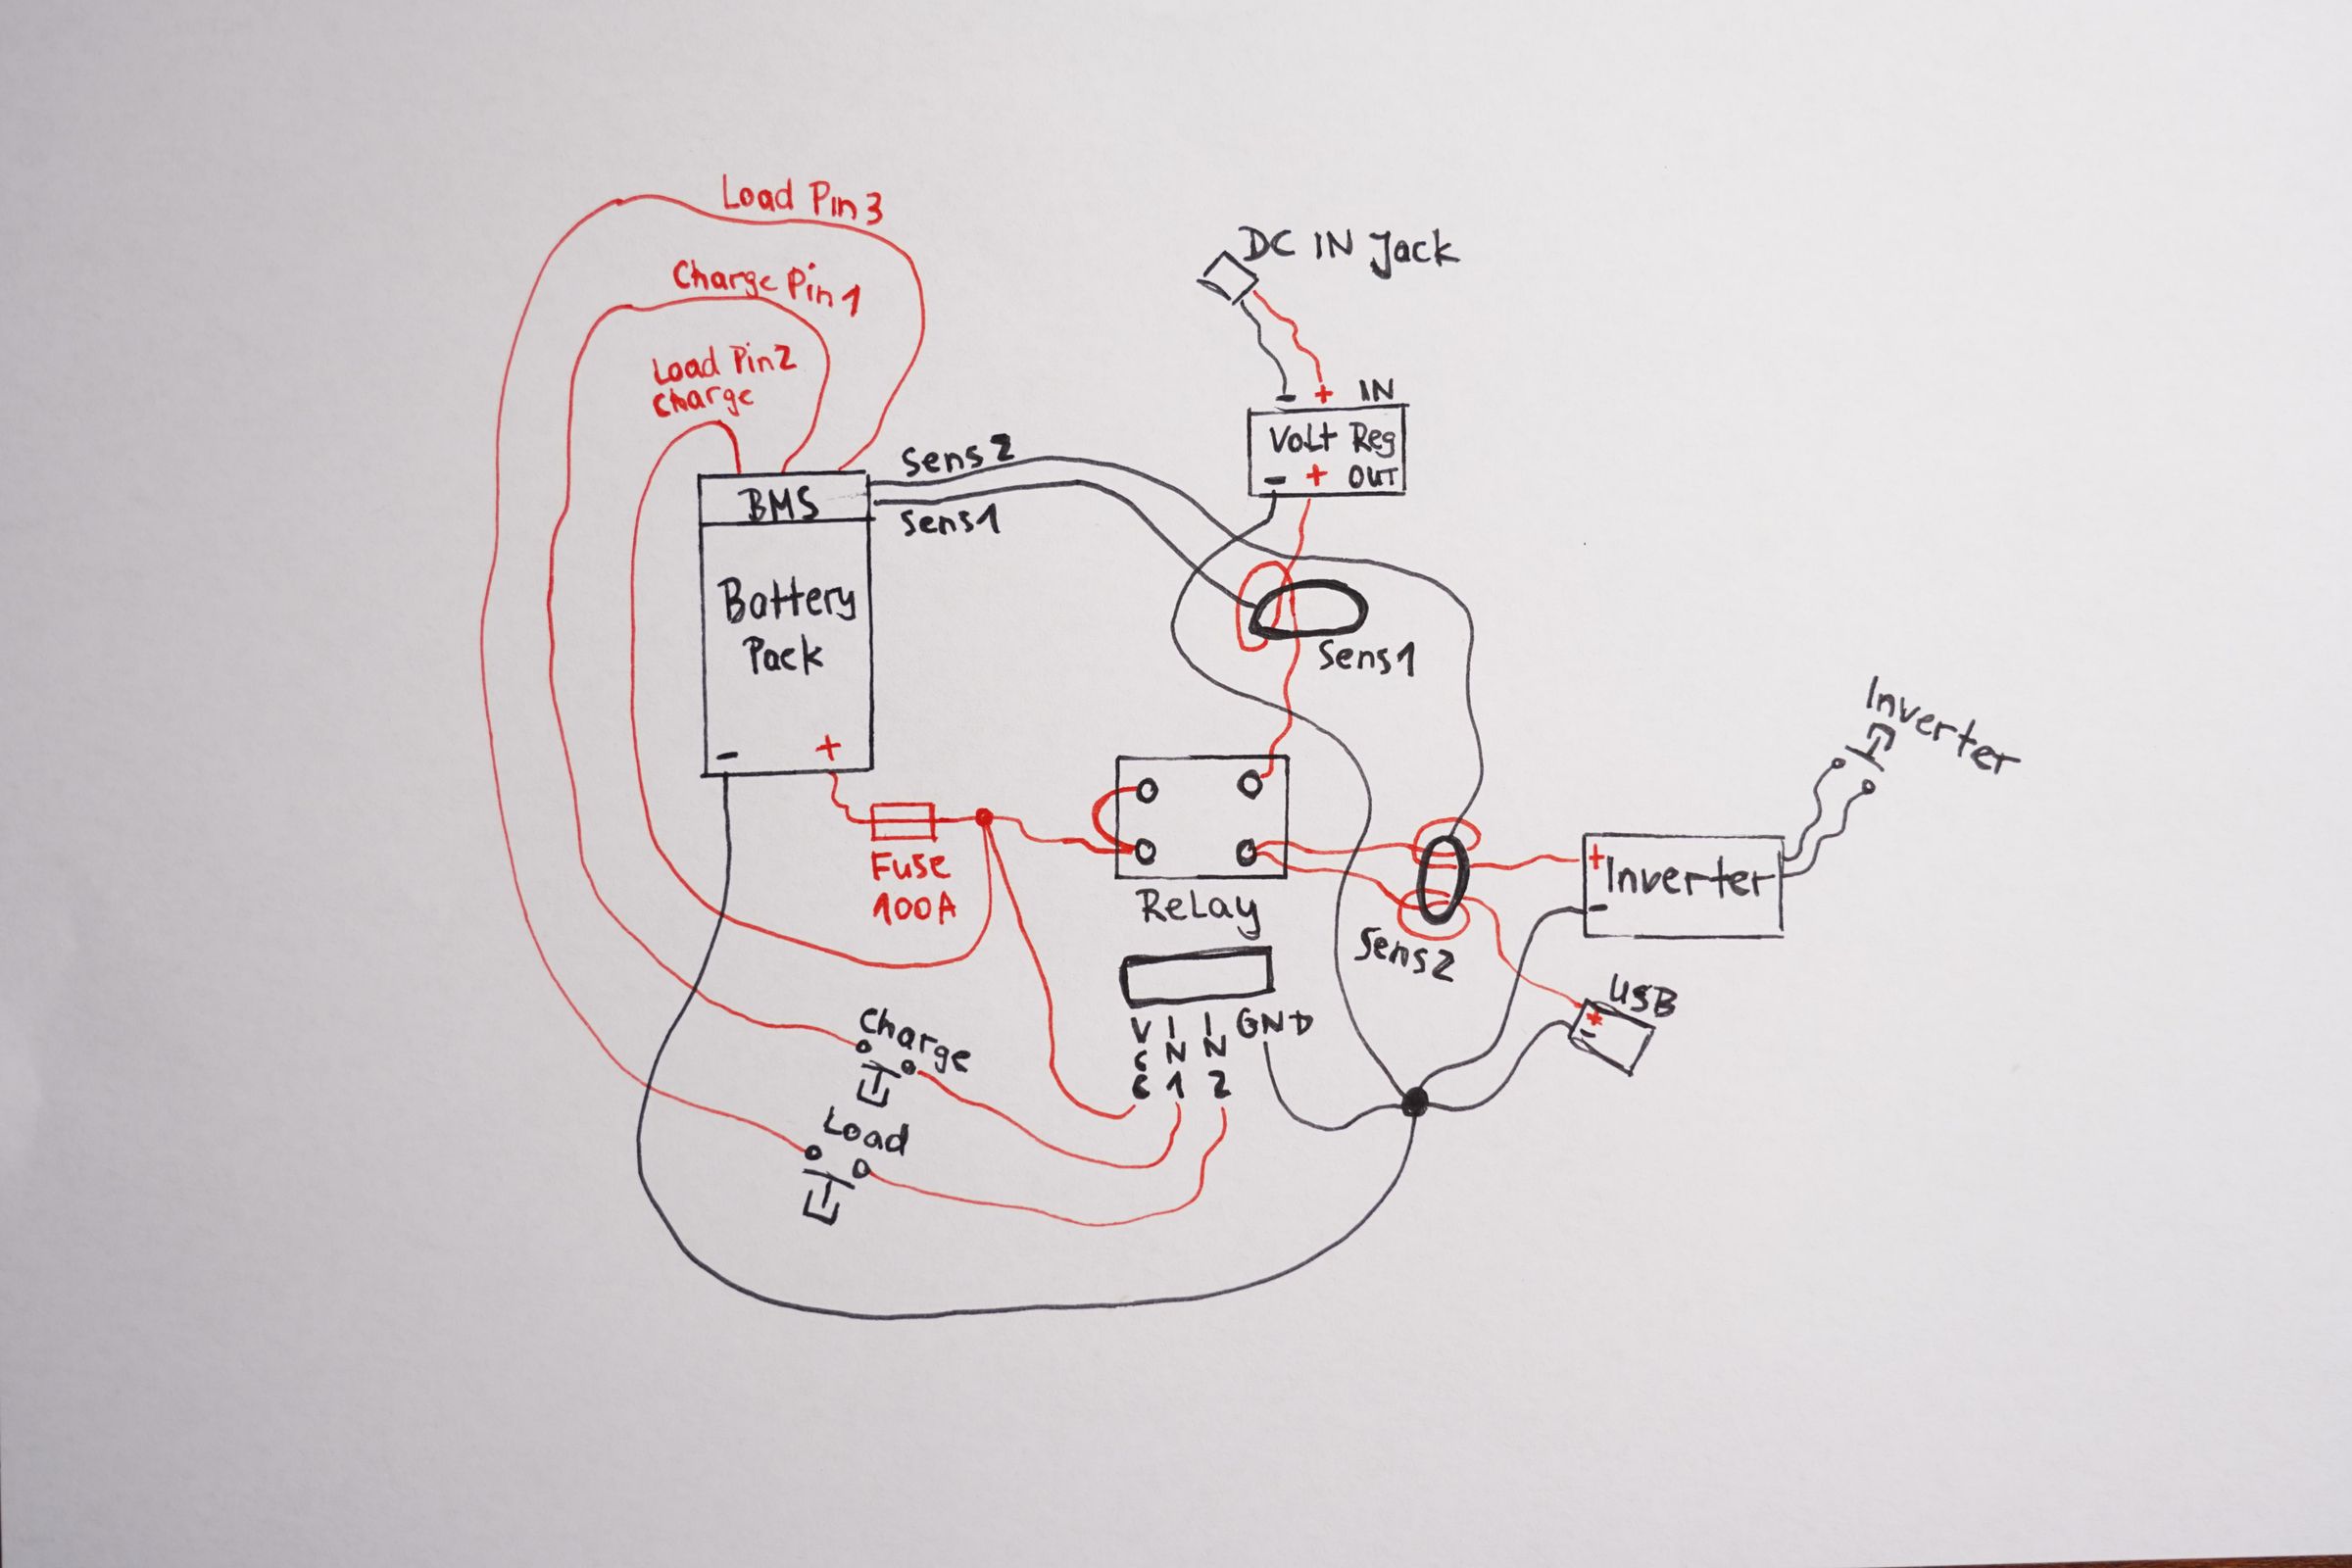 Load Pin 3
Charge Pin 1
Load Pin 2
Charge
DC IN Jack
- + IN
Volt Reg
- + OUT
Sens 2
BMS
Sens1
Battery
Pack
- +
Sens1
Inverter
Fuse
100A
ReLay
+
Inverter
-
Sens2
USB
+
-
VCC IN1 IN2 GND
Charge
Load